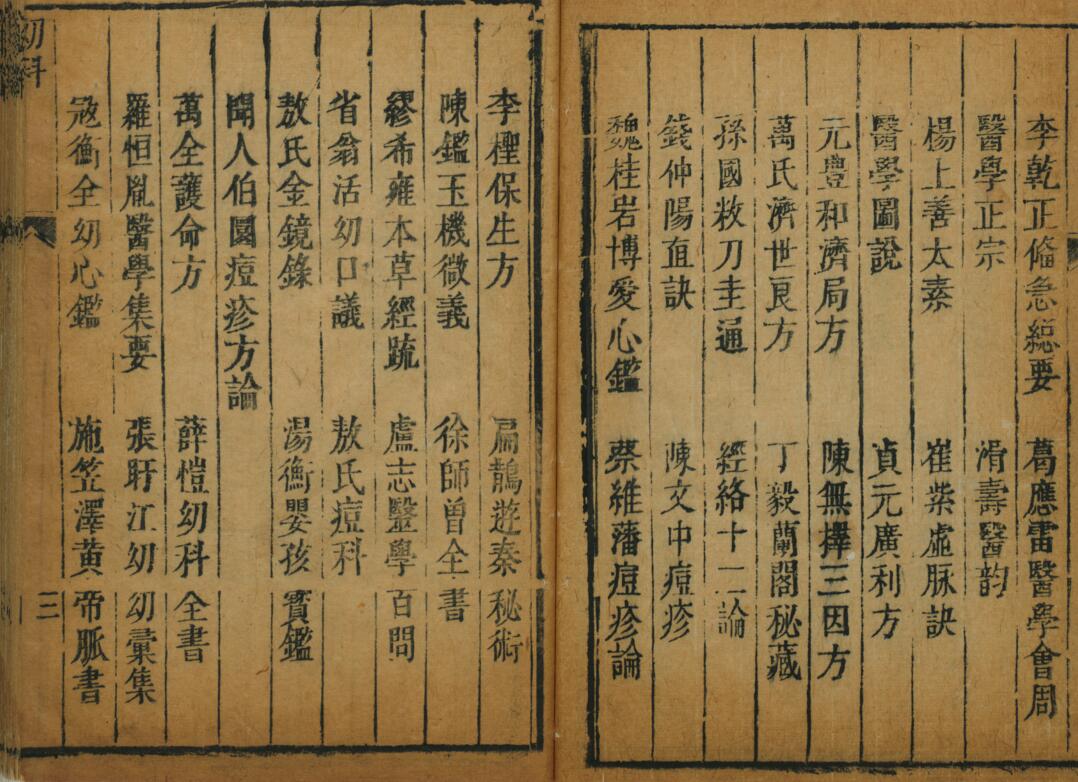 李乾正脩急総要 葛應雷醫學會周
醫學正宗 滑壽醫韵
楊上善太素 崔紫虛脉訣
醫學圖說 貞元廣利方
元豊和濟局方 陳無擇三因方
萬氏濟世良方 丁毅蘭閣秘藏
孫國敉刀圭通 經絡十二論
錢仲陽直訣 陳文中痘疹
魏桂岩博愛心鑑 蔡維藩痘疹論
李檉保生方 扁鵲遊秦秘術
陳鑑玉機微義 徐師曾全書
繆希雍本草經疏 盧志醫學百問
省翁活幼口議 敖氏痘科
敖氏金鏡錄 湯衡嬰孩寶鑑
聞人伯圜痘疹方論
萬全護命方 薛愷幼科全書
羅恒胤醫學集要 張盱江幼幼彙集
冦衡全幼心鑑 施笠澤黃帝脈書
幼科
三